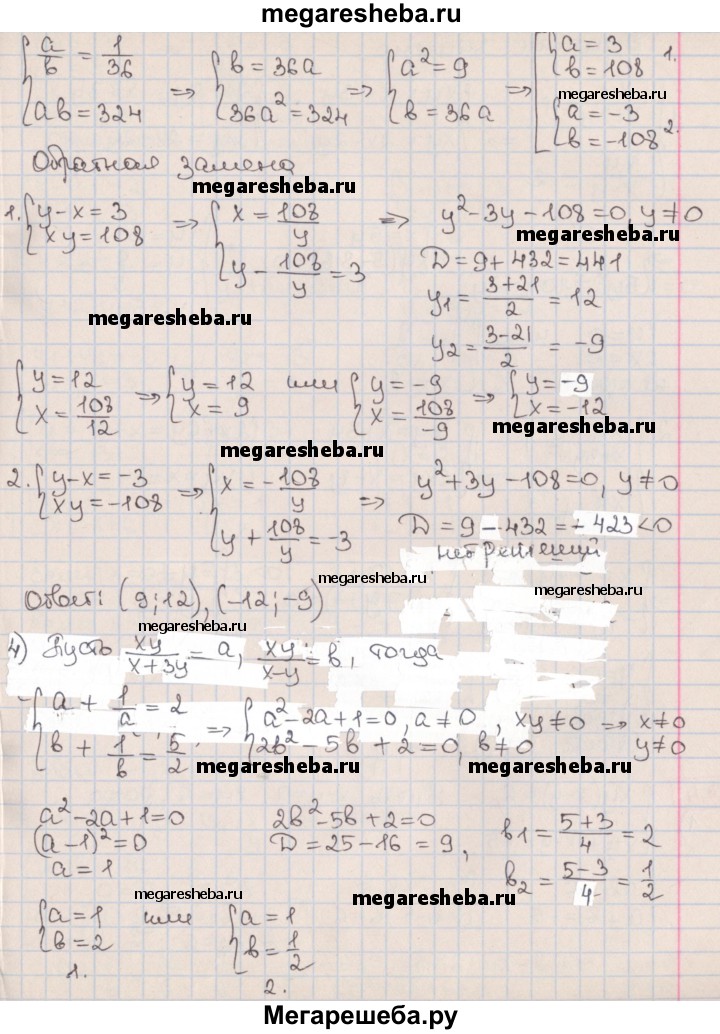 megaresheba.ru
{ a/b = 1/36 ; ab = 324 => { b = 36a ; 36a² = 324 => { a² = 9 ; b = 36a => [ { a = 3 ; b = 108 1. { a = -3 ; b = -108 2.
megaresheba.ru
Обратная замена
megaresheba.ru
1. { y - x = 3 ; xy = 108 => { x = 108/y ; y - 108/y = 3 => y² - 3y - 108 = 0, y ≠ 0
megaresheba.ru
D = 9 + 432 = 441
y₁ = (3+21)/2 = 12
megaresheba.ru
y₂ = (3-21)/2 = -9
{ y = 12 ; x = 108/12 => { y = 12 ; x = 9 или { y = -9 ; x = 108/-9 => { y = -9 ; x = -12
megaresheba.ru
megaresheba.ru
2. { y - x = -3 ; xy = -108 => { x = -108/y ; y + 108/y = -3 => y² + 3y - 108 = 0, y ≠ 0
D = 9 - 432 = - 423 < 0
нет решений
megaresheba.ru
megaresheba.ru
Ответ: (9; 12), (-12; -9)
megaresheba.ru
4) Пусть xy/(x+3y) = a, xy/(x-y) = b, тогда
{ a + 1/a = 2 ; b + 1/b = 5/2 => { a² - 2a + 1 = 0, a ≠ 0 ; 2b² - 5b + 2 = 0, b ≠ 0 , xy ≠ 0 => x ≠ 0 y ≠ 0
megaresheba.ru
megaresheba.ru
a² - 2a + 1 = 0 2b² - 5b + 2 = 0 b₁ = (5+3)/4 = 2
(a - 1)² = 0 D = 25 - 16 = 9,
a = 1 b₂ = (5-3)/4 = 1/2
megaresheba.ru
megaresheba.ru
{ a = 1 ; b = 2 или { a = 1 ; b = 1/2
1. 2.
Мегарешеба.ру